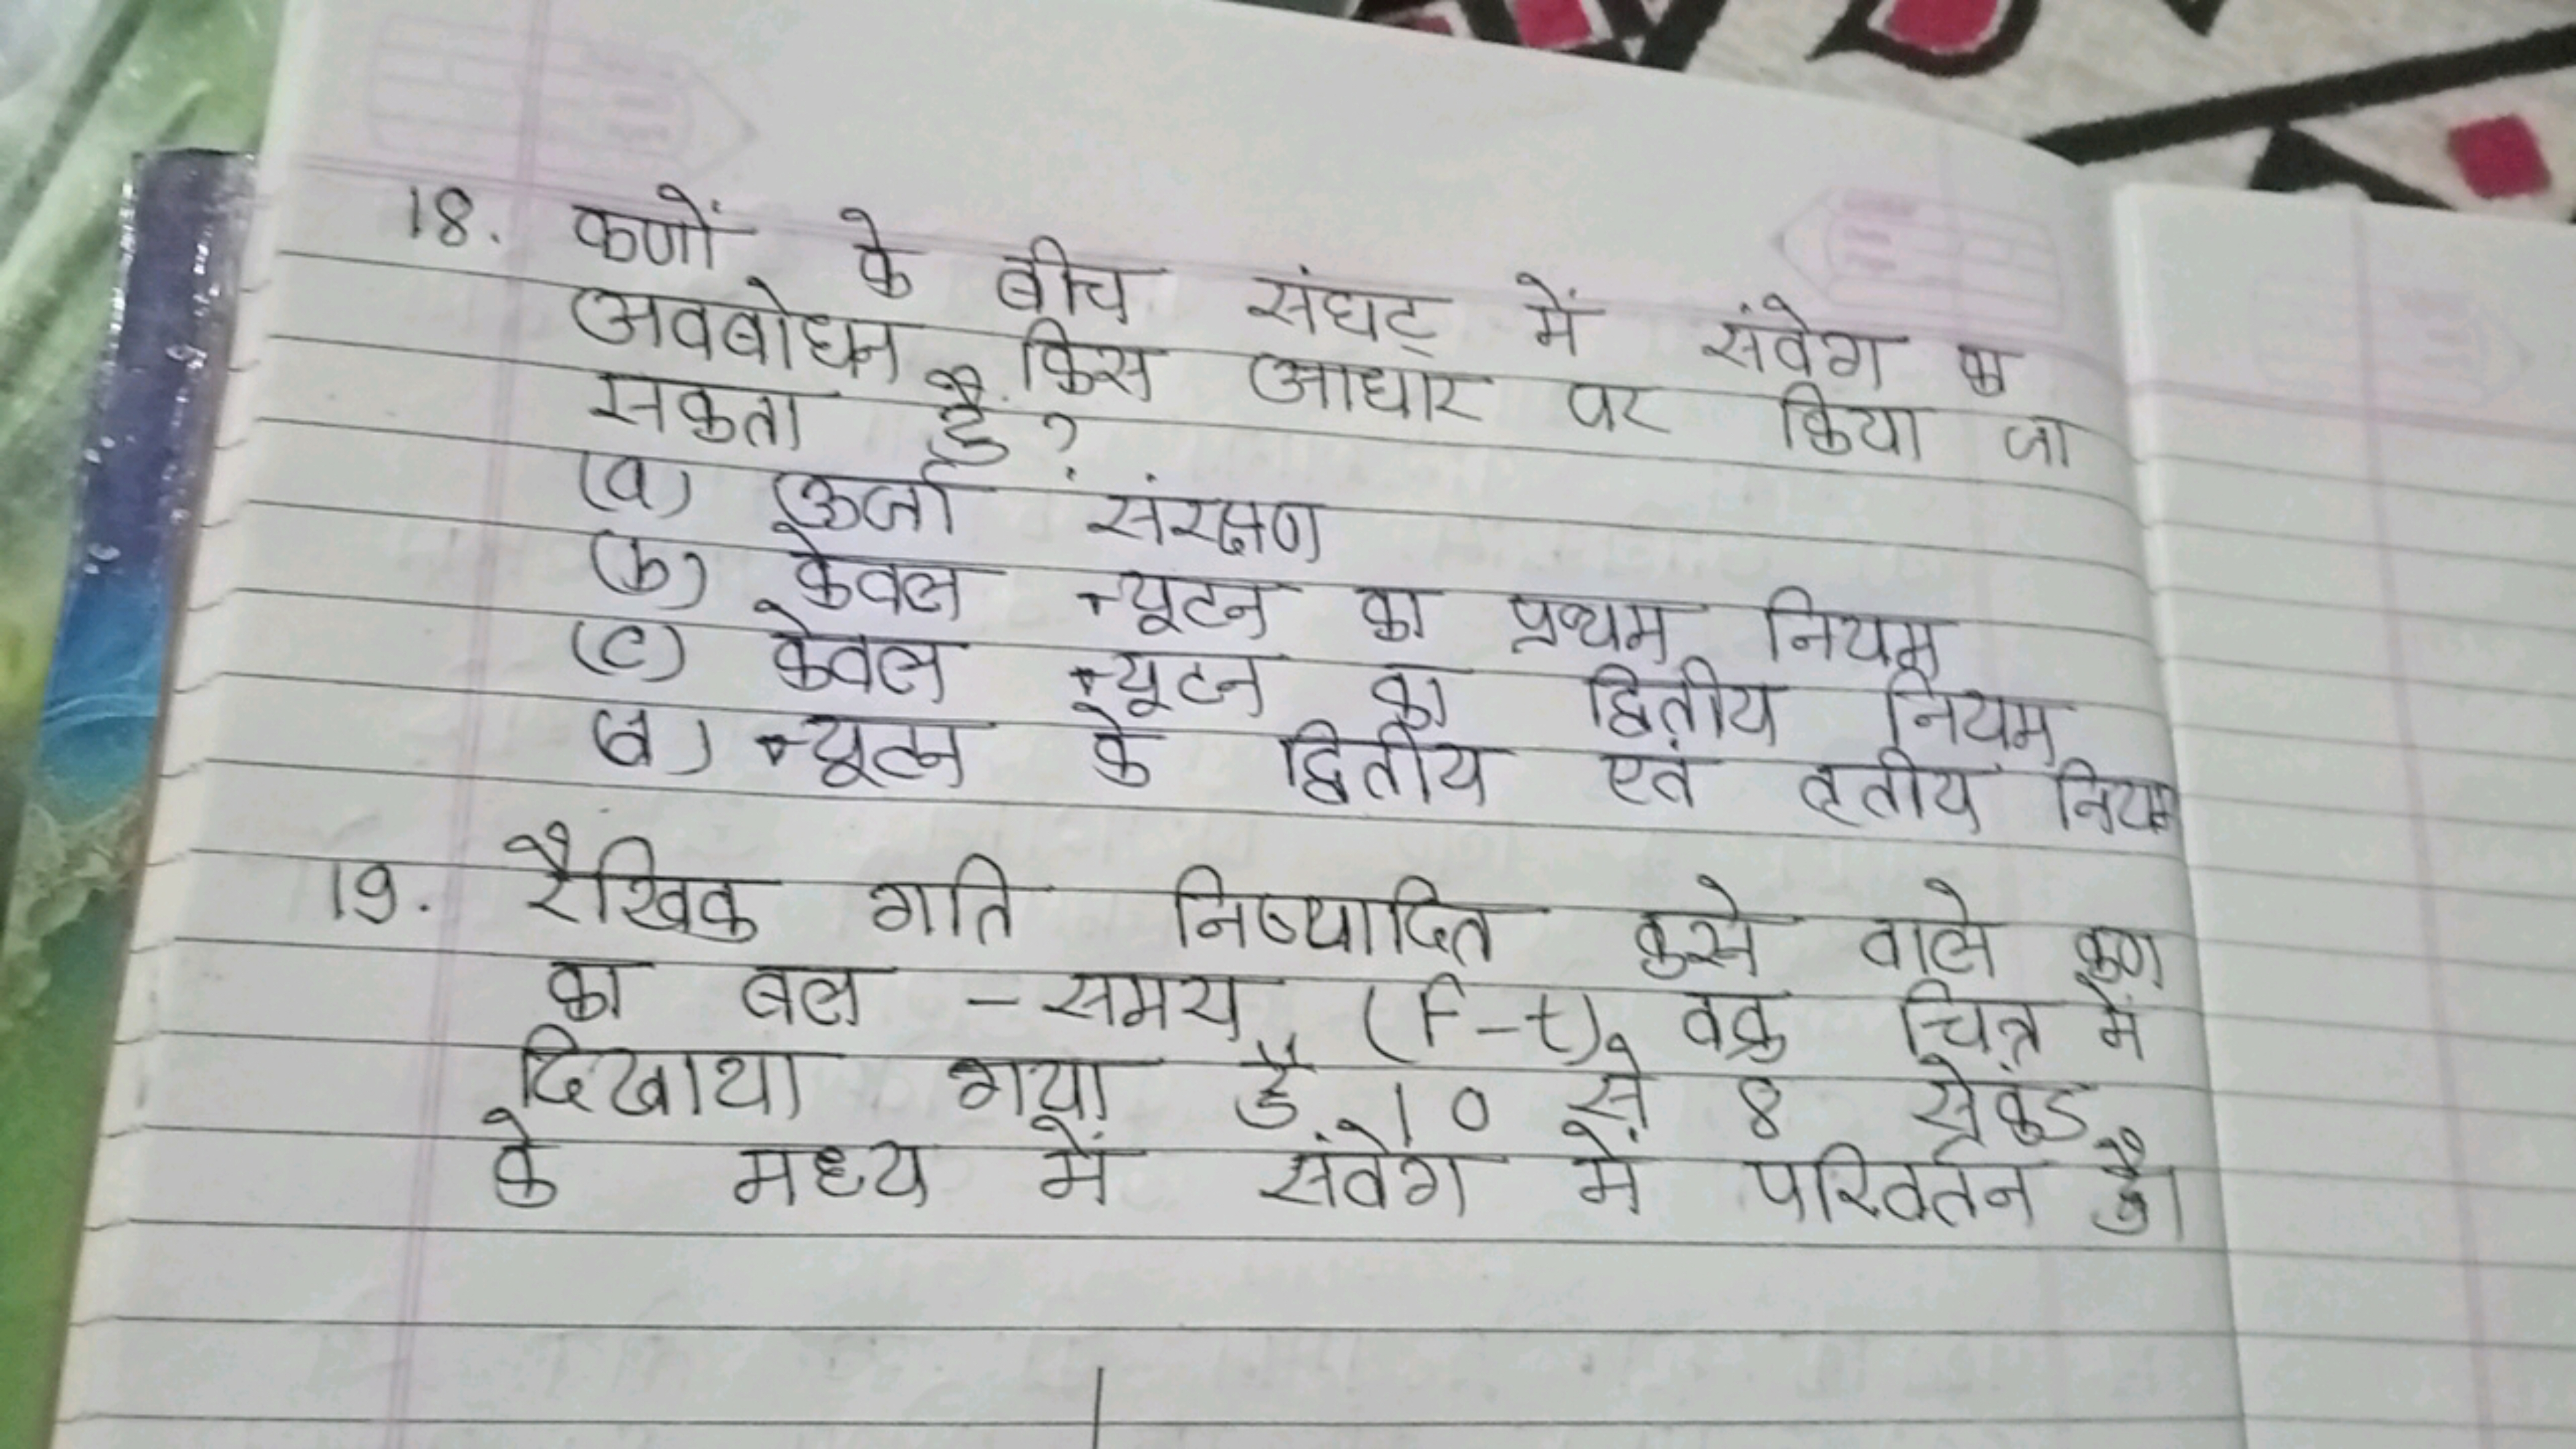 18. कणों के बीच संघट् में संवेग का
अवबोधन किस आधार पर किया जा
सकता है?
(a) ऊर्जा संरक्षण
(b) केवल न्यूटन का प्रथम नियम
(c) केवल न्यूटन का द्वितीय नियम
(d) न्यूटन के द्वितीय एवं तृतीय नियम
19. रैखिक गति निष्पादित करने वाले कण
का बल - समय (F-t) वक्र चित्र में
दिखाया गया है। 0 से 8 सेकंड
के मध्य में संवेग में परिवर्तन है।